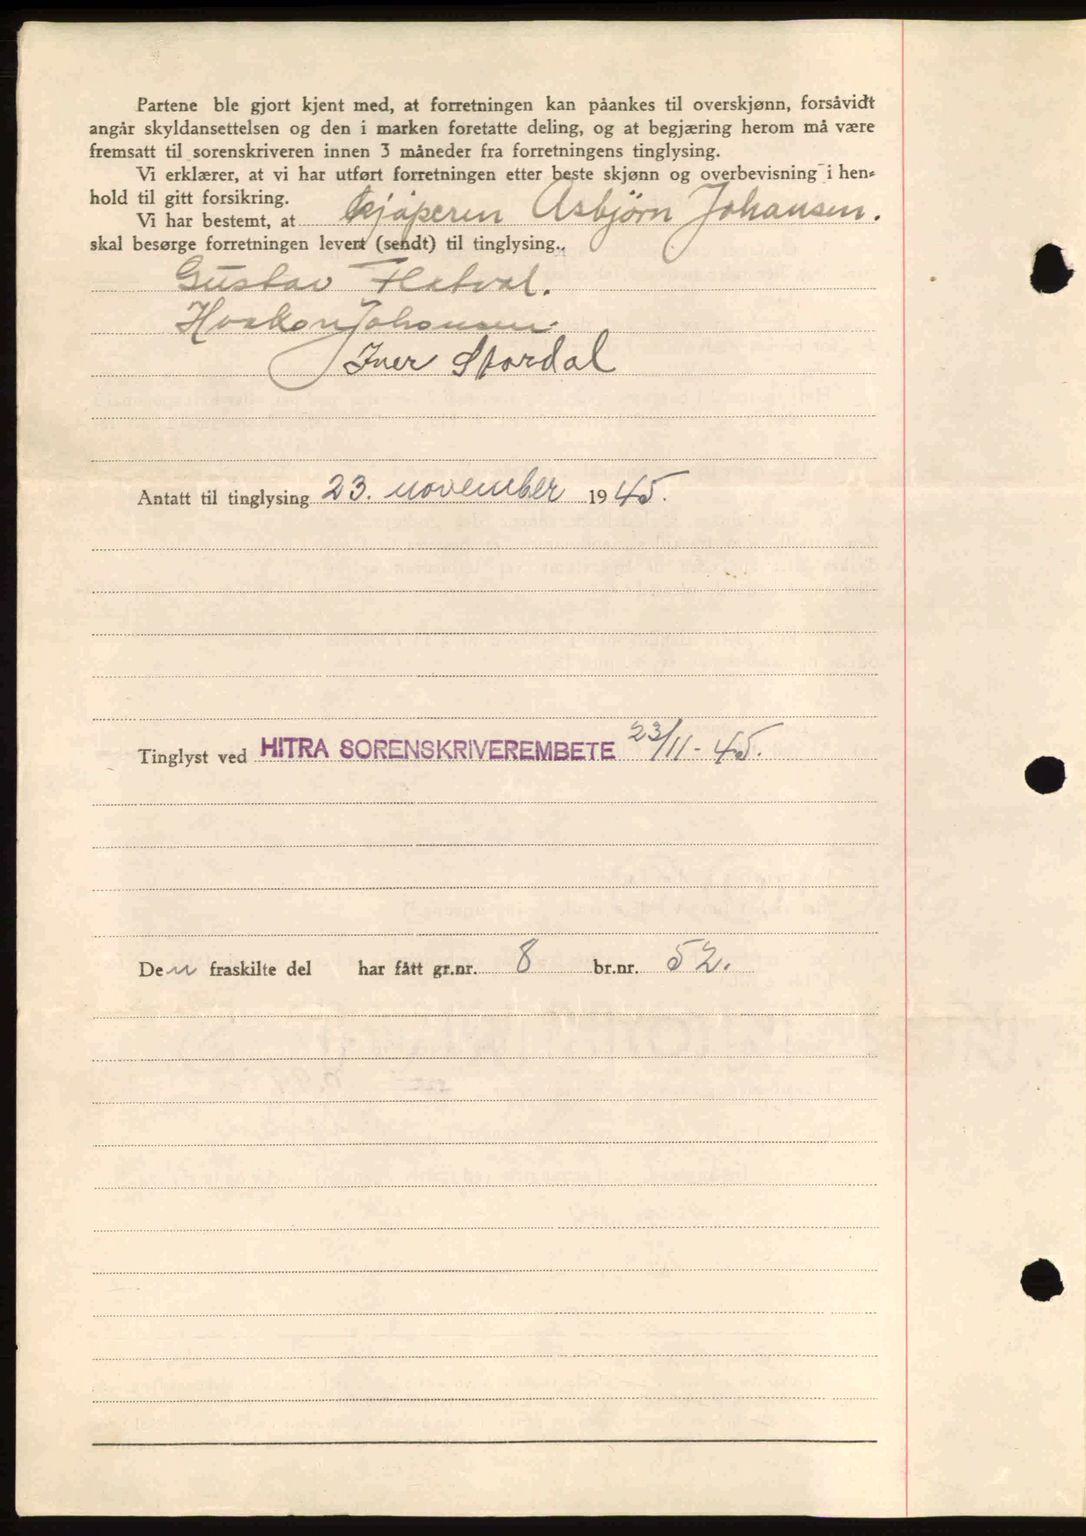 Partene ble gjort kjent med, at forretningen kan påankes til overskjønn, forsåvidt
angår skyldansettelsen og den i marken foretatte deling, og at begjæring herom må være
fremsatt til sorenskriveren innen 3 måneder fra forretningens tinglysing.
Vi erklærer, at vi har utført forretningen etter beste skjønn og overbevisning i hen-
hold til gitt forsikring.
Vi har bestemt, at kjøperen Asbjørn Johansen.
skal besørge forretningen levert (sendt) til tinglysing.
Gustav Flatval.
Haakon Johansen.
Iver Stordal
Antatt til tinglysing 23. november 1945.
Tinglyst ved HITRA SORENSKRIVEREMBETE 23/11-45.
Den fraskilte del har fått gr.nr. 8 br.nr. 52.